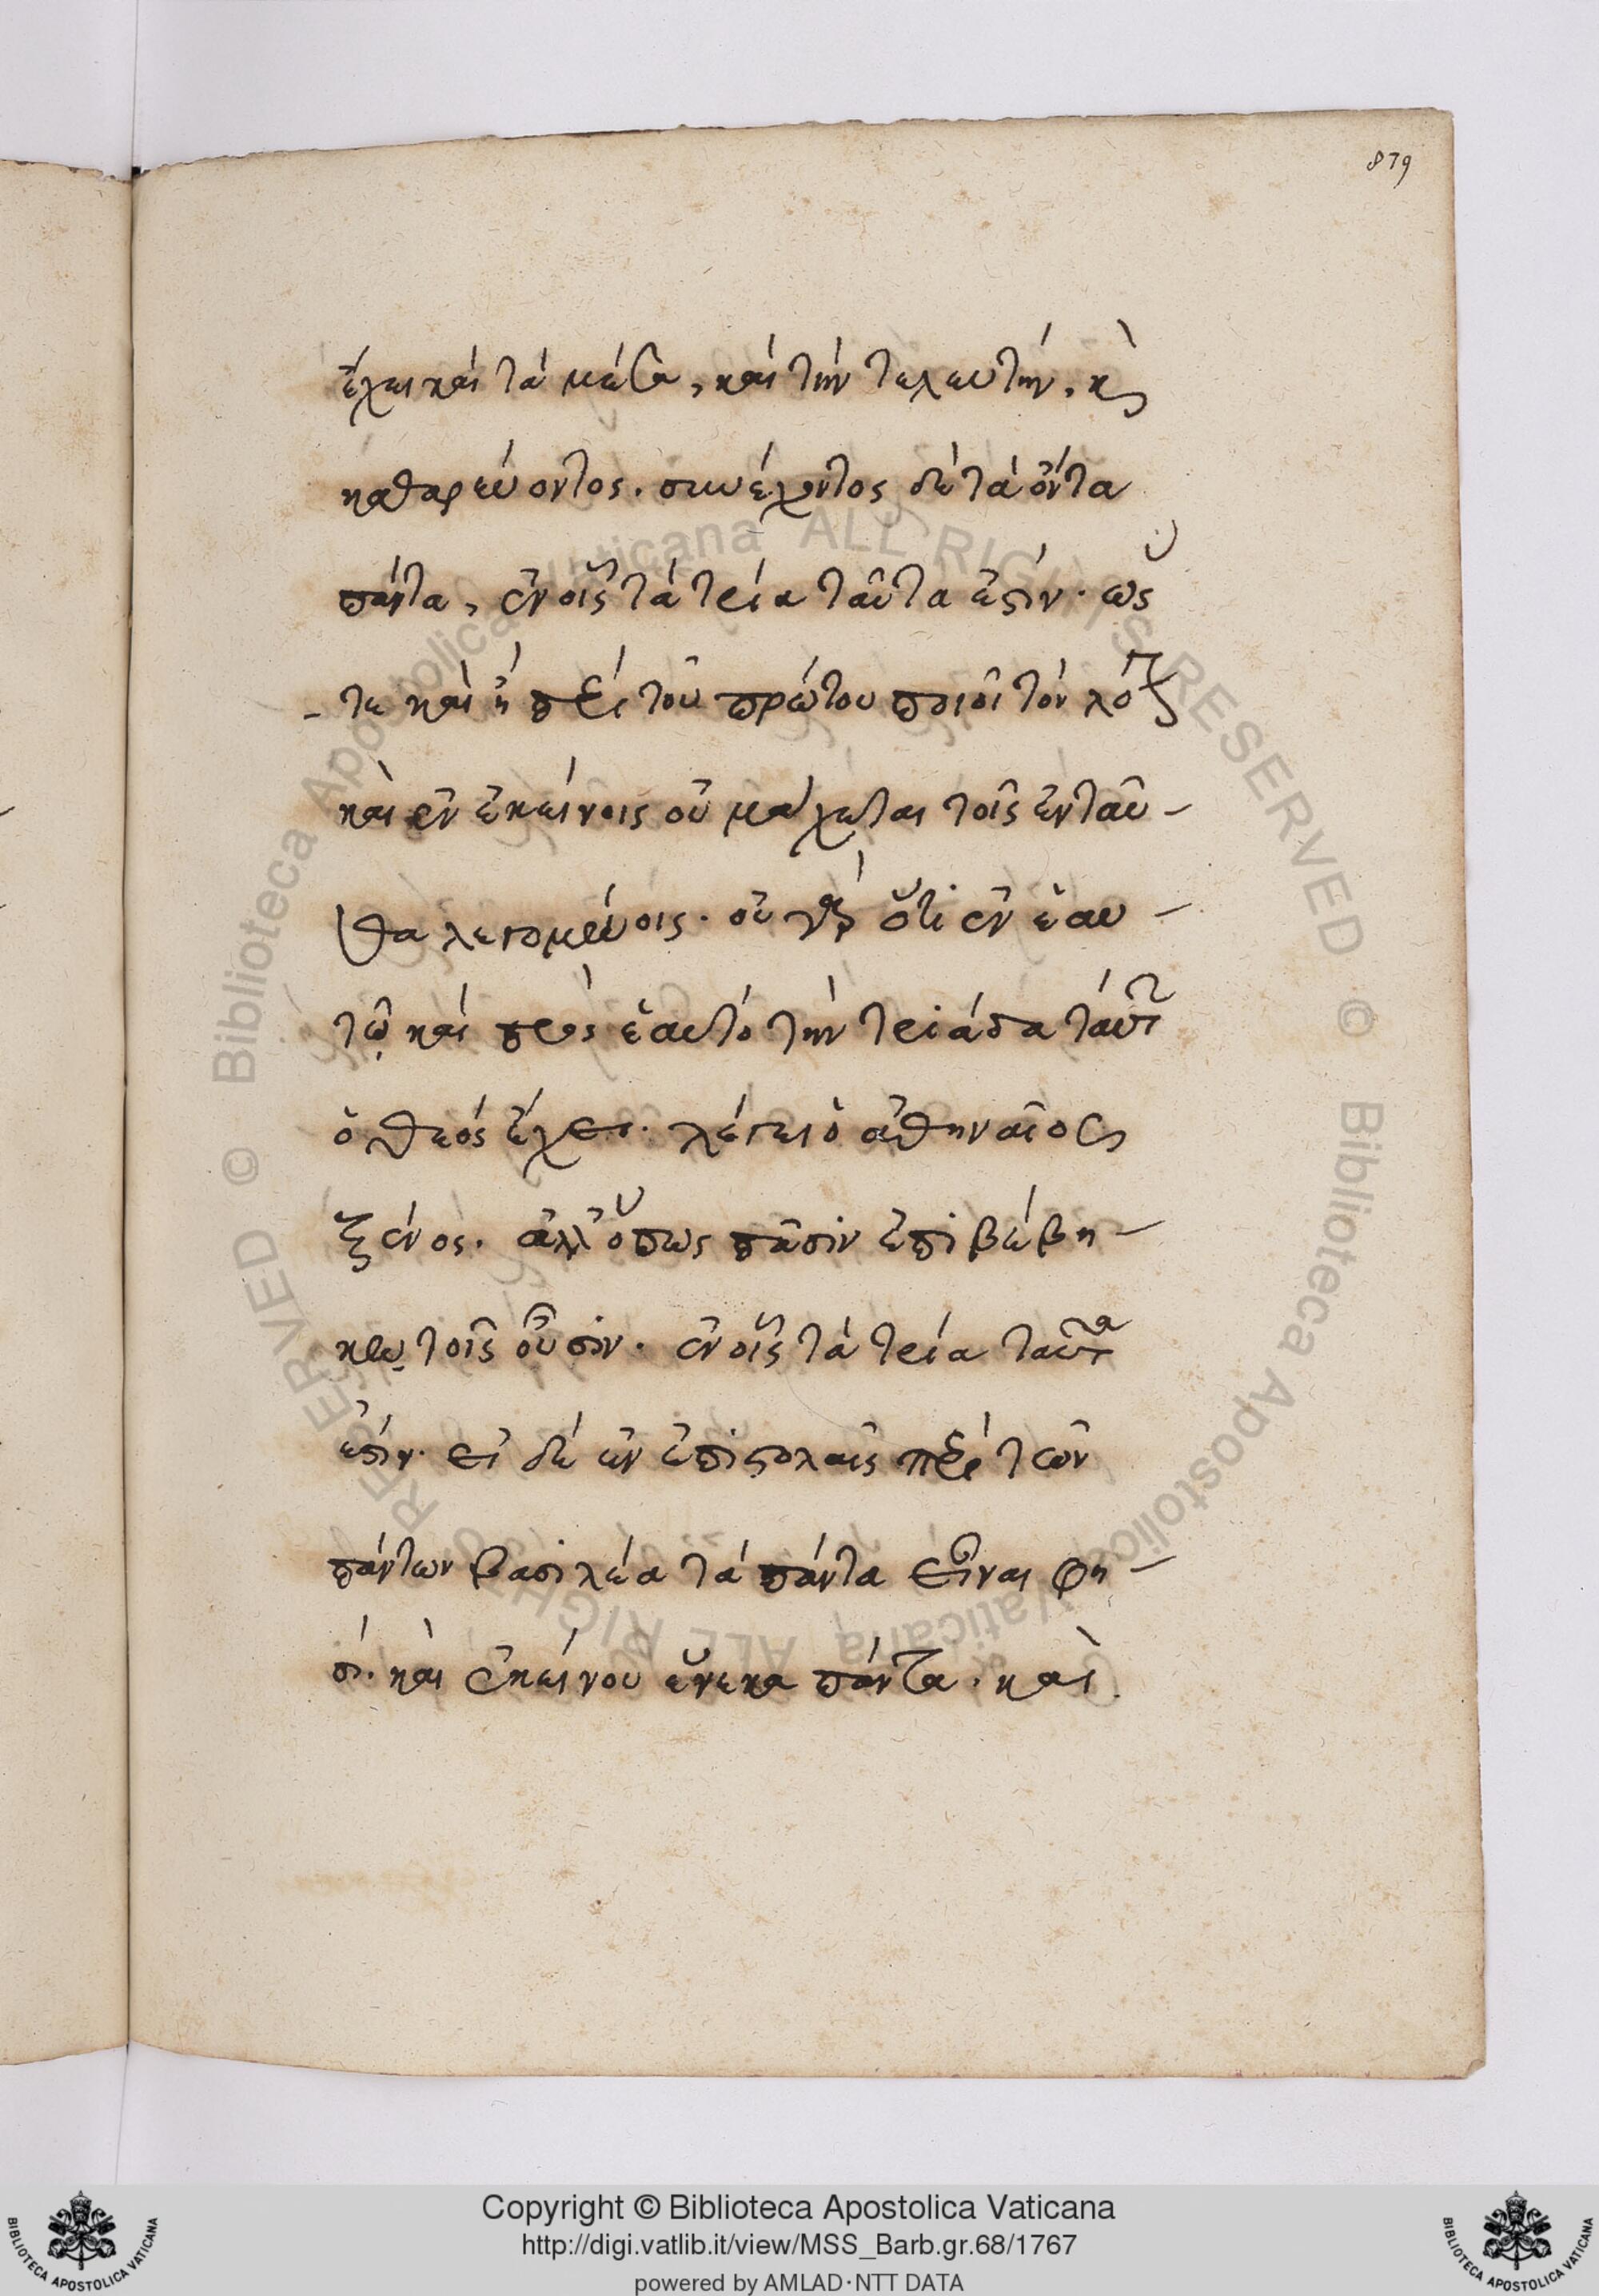 879
ἔχει καὶ τὰ μέσα, καὶ τὴν τελευτήν. κ̀
καθαρεύοντος. συνέχοντος δὲ τὰ ὄντα
πάντα, ἐν οἷς τὰ τρία ταῦτα ἐστίν. ὥς
τε καὶ ἢ περὶ τοῦ πρώτου ποιοῖ τὸν λό
καὶ ἐν ἐκείνοις οὐ μάχεται τοῖς ἐνταῦ-
θα λεγομένοις. οὐ γὰρ ὅτι ἐν ἑαυ-
τῷ καὶ πρὸς ἑαυτὸ τὴν τριάδα ταύτ
ὁ θεὸς ἔχει. λέγει ὁ ἀθηναῖος
ξένος. ἀλλ' ὅπως πᾶσιν ἐπιβέβη-
κεν τοῖς οὖσιν. ἐν οἷς τὰ τρία ταῦτα
ἐστίν. εἰ δὲ ἐν ἐπιστολαῖς περὶ τῶν
πάντων βασιλέα τὰ πάντα εἶναι φη-
σί. καὶ ἐκείνου ἕνεκα πάντα. καὶ
© Biblioteca Apostolica Vaticana ALL RIGHTS RESERVED © Biblioteca Apostolica Vaticana ALL RIGHTS RESERVED
Copyright © Biblioteca Apostolica Vaticana
http://digi.vatlib.it/view/MSS_Barb.gr.68/1767
powered by AMLAD·NTT DATA
BIBLIOTECA APOSTOLICA VATICANA
BIBLIOTECA APOSTOLICA VATICANA